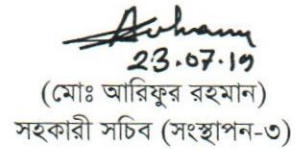 23.07.19
(মোঃ আরিফুর রহমান)
সহকারী সচিব (সংস্থাপন-৩)